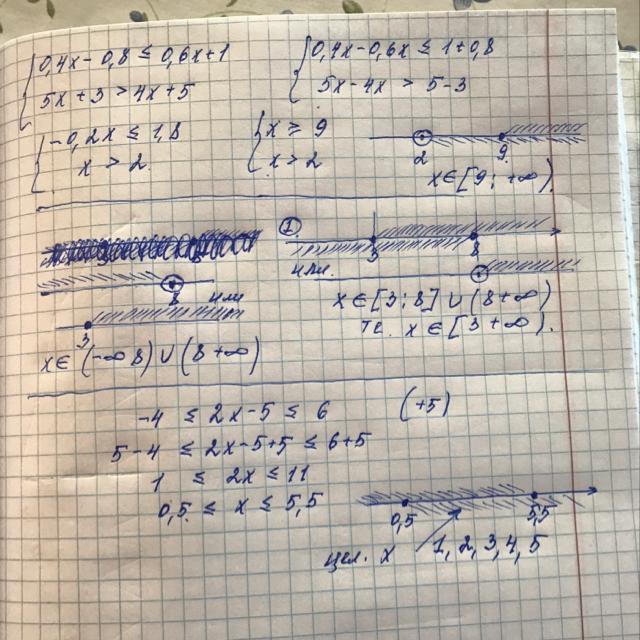 0,4x - 0,8 ≤ 0,6x + 1
5x + 3 > 4x + 5
0,4x - 0,6x ≤ 1 + 0,8
5x - 4x > 5 - 3
-0,2x ≤ 1,8
x > 2
x ≥ 9
x > 2
2 9
x ∈ [9; +∞)
8 или
3
x ∈ (-∞ 8) ∪ (8 +∞)
1
3 8
или
x ∈ [3; 8] ∪ (8 +∞)
те. x ∈ [3 +∞).
-4 ≤ 2x - 5 ≤ 6 (+5)
5 - 4 ≤ 2x - 5 + 5 ≤ 6 + 5
1 ≤ 2x ≤ 11
0,5 ≤ x ≤ 5,5
0,5 5,5
цел. x 1, 2, 3, 4, 5